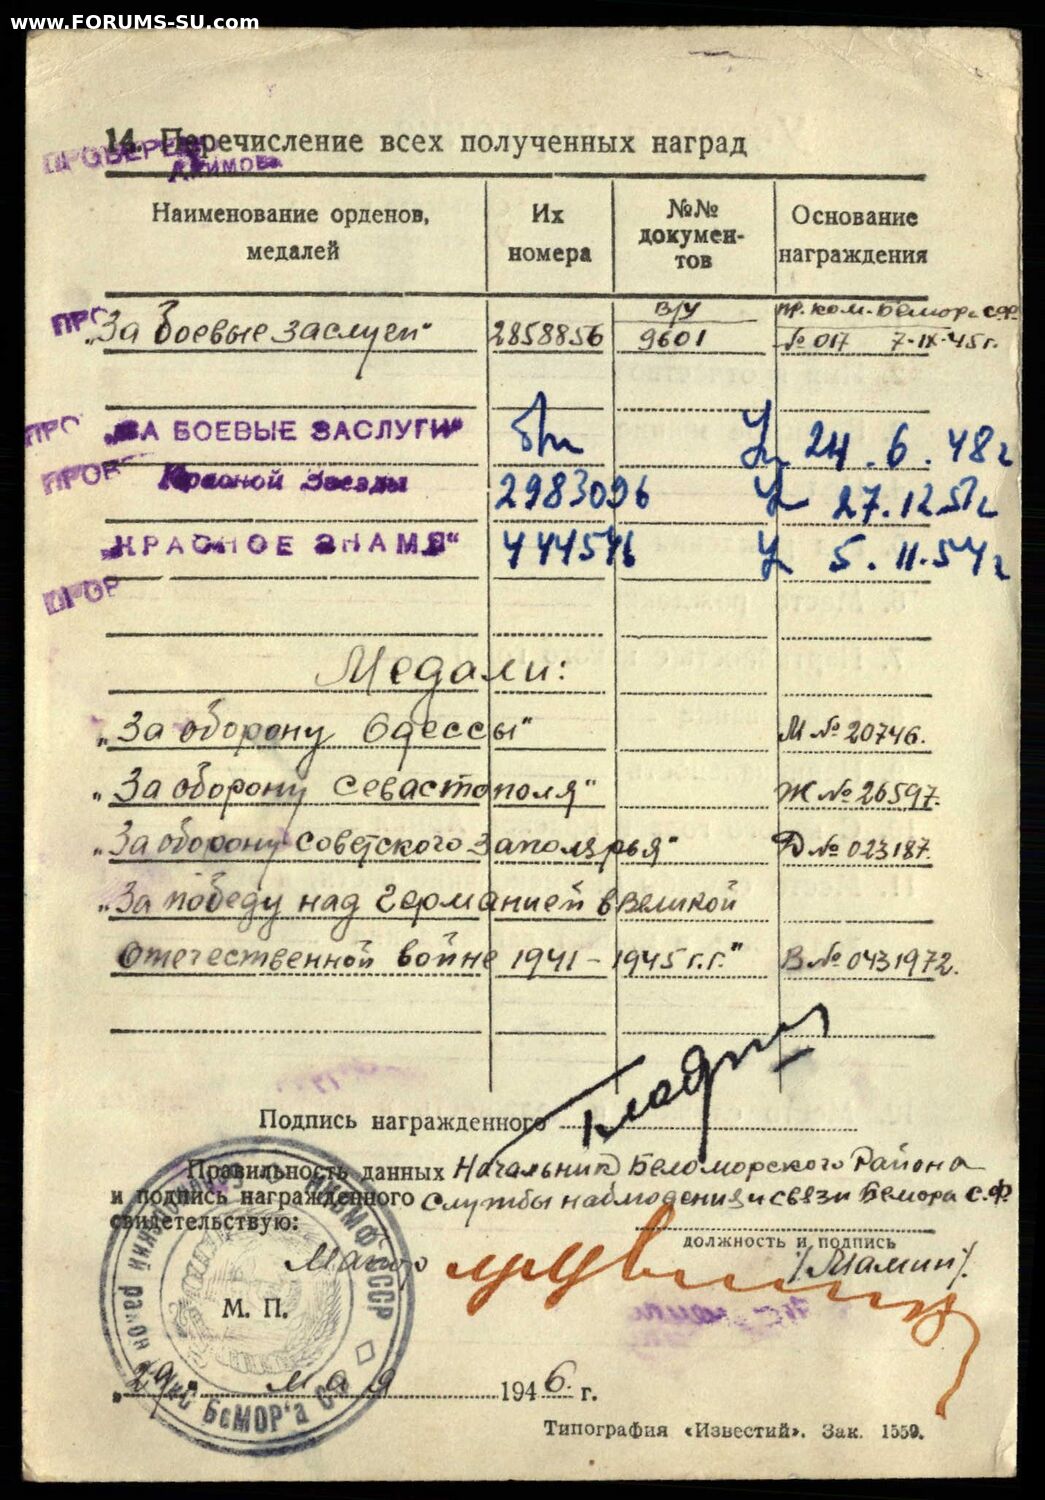 www.FORUMS-SU.com
14. Перечисление всех полученных наград
ПРОВЕРЕНО
Наименование орденов, медалей
Их номера
№№ документов
Основание награждения
ПРО
„За боевые заслуги“ 2858856 В/У 9601 пр. ком. Бемора с.ф. № 017 7-IX-45г.
ПРО „ЗА БОЕВЫЕ ЗАСЛУГИ“ б/н У 24.6.48г
ПРОВЕ Красной Звезды 2983096 У 27.12.51г
„КРАСНОЕ ЗНАМЯ“ 444546 У 5.11.54г
ПРОВ
Медали:
„За оборону Одессы“ М № 20746.
„За оборону Севастополя“ Ж № 26597.
„За оборону Советского Заполярья“ Д № 023187.
„За победу над Германией в Великой
Отечественной войне 1941-1945 г.г.“ В № 0431972.
Подпись награжденного
Правильность данных Начальник Беломорского Района
и подпись награжденного Службы наблюдения и связи Бемора С.Ф.
свидетельствую:
должность и подпись
Майор /Мамин/.
М. П.
НКВМФ СССР
район
БеМОР'а СФ
„29“ мая 1946 г.
Типография «Известий». Зак. 1559.